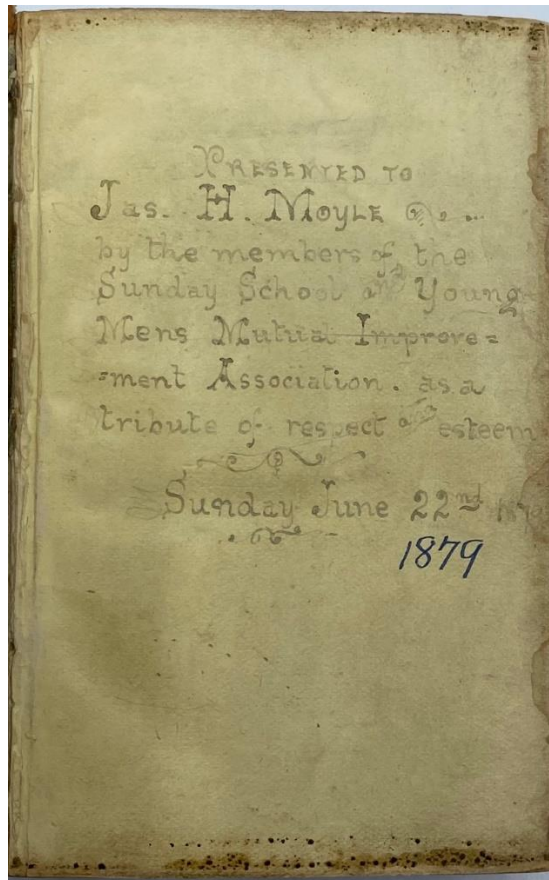 PRESENTED TO
Jas. H. MOYLE
by the members of the
Sunday School and Young
Mens Mutual Improve=
=ment Association. as a
tribute of respect and esteem
Sunday June 22nd 1879
1879